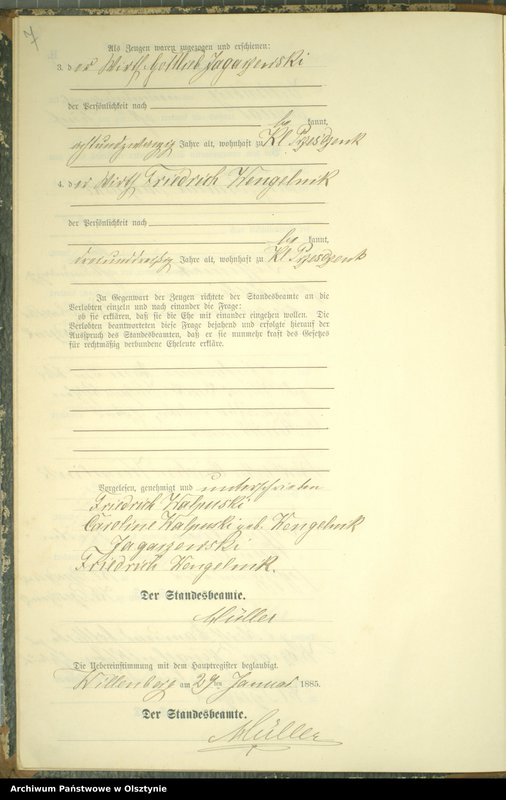 7
Als Zeugen waren zugezogen und erschienen:
3. der Wirth Gottlieb Jagaczewski
der Persönlichkeit nach
be kannt,
achtundzwanzig Jahre alt, wohnhaft zu Kl Przesdzenk
4. der Wirth Friedrich Wengelnik
der Persönlichkeit nach
be kannt,
dreiunddreißig Jahre alt, wohnhaft zu Kl Przesdzenk
In Gegenwart der Zeugen richtete der Standesbeamte an die
Verlobten einzeln und nach einander die Frage:
ob sie erklären, daß sie die Ehe mit einander eingehen wollen. Die
Verlobten beantworteten diese Frage bejahend und erfolgte hierauf der
Ausspruch des Standesbeamten, daß er sie nunmehr kraft des Gesetzes
für rechtmäßig verbundene Eheleute erkläre.
Vorgelesen, genehmigt und unterschrieben
Friedrich Kalpuski
Caroline Kalpuski geb. Wengelnik
Jagaczewski
Friedrich Wengelnik.
Der Standesbeamte.
Müller
Die Uebereinstimmung mit dem Hauptregister beglaubigt.
Willenberg am 29ten Januar 1885.
Der Standesbeamte.
Müller
Archiwum Państwowe w Olsztynie